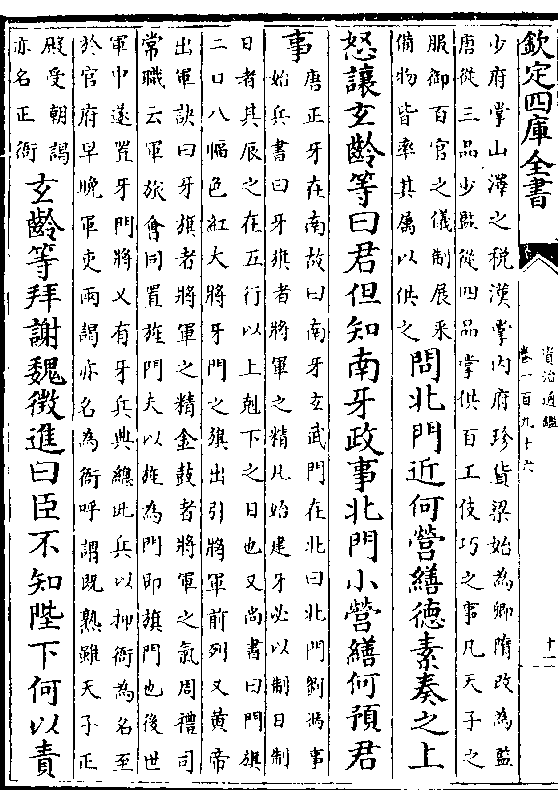 欽定四庫全書
資治通鑑
卷一百九十六
十二
少府掌山澤之稅漢掌内府珍貨梁始為卿隋改為監
唐從三品少監從四品掌供百工伎巧之事凡天子之
服御百官之儀制展采
備物皆率其屬以供之
問北門近何營繕德素奏之上
怒讓玄齡等曰君但知南牙政事北門小營繕何預君
事
唐正牙在南故曰南牙玄武門在北曰北門劉馮事
始兵書曰牙旗者將軍之精凡始建牙必以制日制
日者其辰之在五行以上剋下之日也又尚書曰門旗
二口八幅色紅大將牙門之旗出引將軍前列又黄帝
出軍訣曰牙旗者將軍之精金鼓者將軍之氣周禮司
常職云軍旅會同置旌門夫以旌為門即旗門也後世
軍中遂置牙門將又有牙兵典總此兵以抑衙為名至
於官府早晩軍吏兩謁亦名為衙呼謂既熟雖天子正
殿受朝謁
亦名正衙
玄齡等拜謝魏徵進曰臣不知陛下何以責